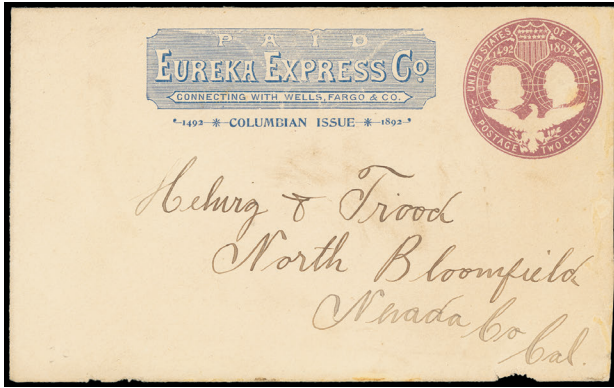 PAID
EUREKA EXPRESS Co
CONNECTING WITH WELLS, FARGO & CO.
1492 * COLUMBIAN ISSUE * 1892
UNITED STATES OF AMERICA
1492 1892
POSTAGE TWO CENTS
Helwig & Trood
North Bloomfield
Nevada Co
Cal.